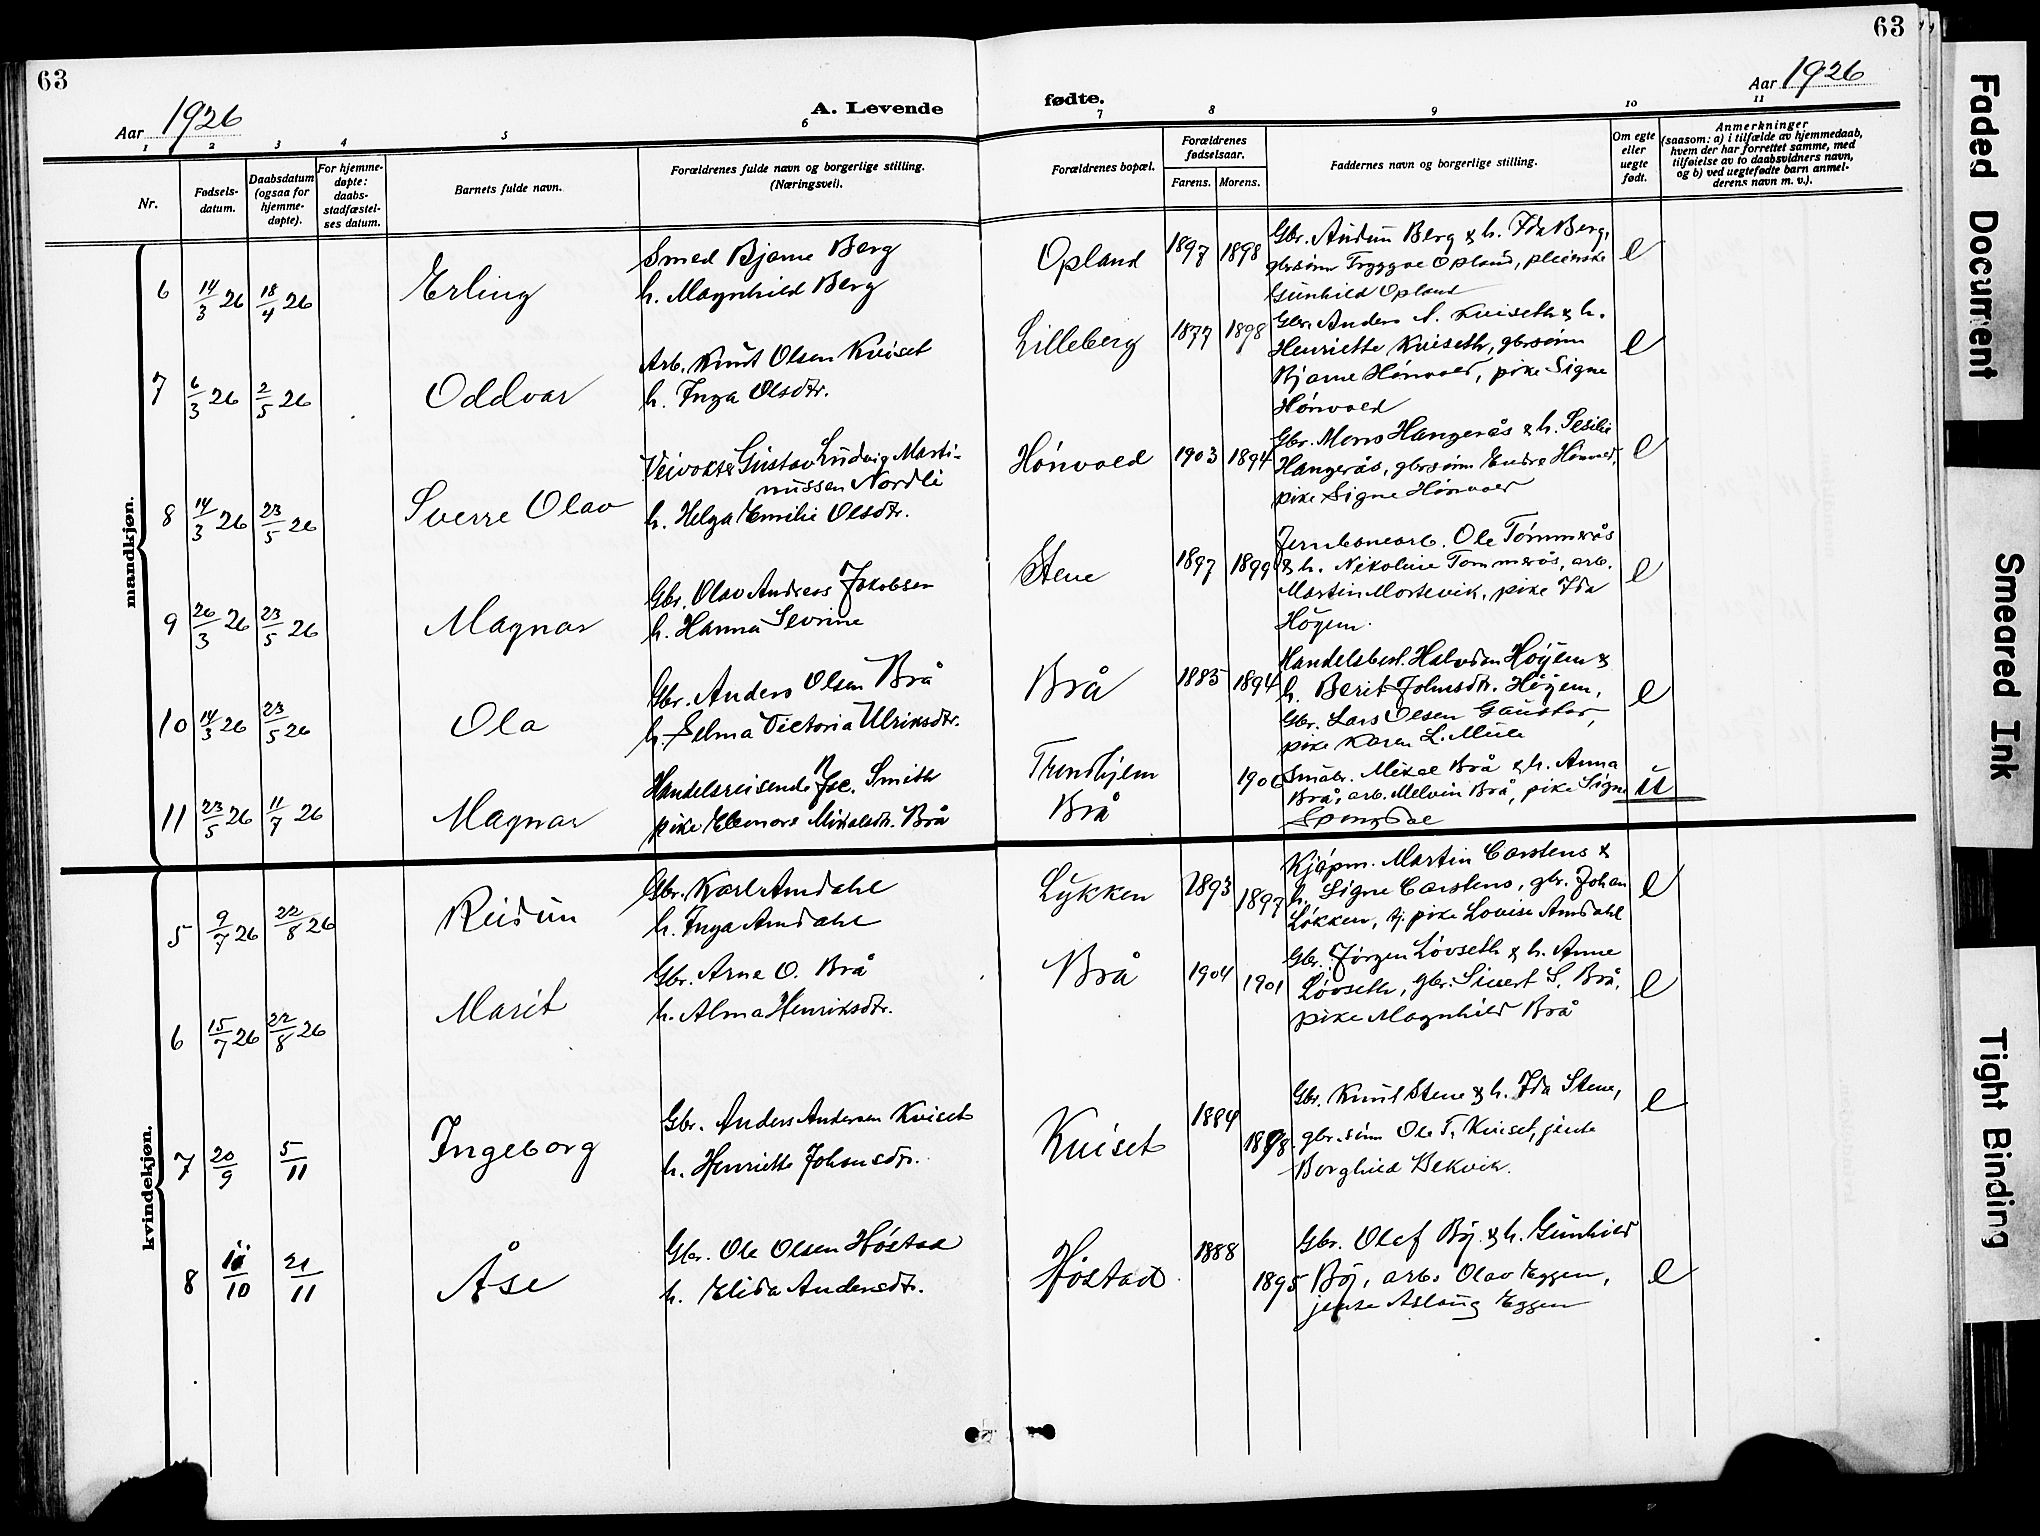 63
63
Aar 1926
A. Levende
fødte.
Aar 1926
1 2 3 4 5 6 7 8 9 10 11
Nr.
Fødsels-
datum.
Daabsdatum
(ogsaa for
hjemme-
døpte).
For hjemme-
døpte:
daabs-
stadfæstel-
ses datum.
Barnets fulde navn.
Forældrenes fulde navn og borgerlige stilling.
(Næringsvei).
Forældrenes bopæl.
Forældrenes
fødselsaar.
Farens. Morens.
Faddernes navn og borgerlige stilling.
Om egte
eller
uegte
født.
Anmerkninger
(saasom: a) i tilfælde av hjemmedaab,
hvem der har forrettet samme, med
tilføielse av to daabsvidners navn,
og b) ved uegtefødte barn anmel-
derens navn m. v.).
mandkjøn.
6 14/3 26 18/4 26 Erling
Smed Bjarne Berg
h. Magnhild Berg
Opland 1897 1898
Gbr. Audun Berg & h. Ida Berg,
gbrsønn Tryggve Opland, pleierske
Gunhild Opland
e
7 6/3 26 2/5 26 Oddvar
Arb. Knut Olsen Kviset
h. Inga Olsdtr.
Lilleberg 1877 1898
Gbr. Anders A. Kviseth & h.
Henriette Kviseth, gbrsønn
Bjarne Hónvold, pike Signe
Hónvold
e
8 14/3 26 23/5 26 Sverre Olav
Veivokter Gustav Ludvig Marti-
nussen Nordli
h. Helga Emilie Olsdtr.
Hónvold 1903 1894
Gbr. Mons Hangerås & h. Sesilie
Hangerås, gbrsønn Endre Hónvold,
pike Signe Hónvold
e
9 26/3 26 23/5 26 Magnar
Gbr. Olav Andreas Jakobsen
h. Hanna Sevrine
Stene 1897 1899
Jernbanearb. Ole Tømmerås
& h. Nikoline Tømmerås, arb.
Martin Mortevik, pike Ida
Höyem.
e
10 14/3 26 23/5 26 Ola
Gbr. Anders Olsen Brå
h. Selma Victoria Ulriksdtr.
Brå 1885 1894
Handelsbest. Halvdan Höyem &
h. Berit Johnsdtr. Höyem,
Gbr. Lars Olsen Gaustar,
pike Karen L. Mule
e
11 23/5 26 11/7 26 Magnar
Handelsreisende Jac. Smith
pike Elenore Mikalsdtr. Brå
Trondhjem
Brå
1906
Småbr. Mikal Brå & h. Anna
Brå, arb. Melvin Brå, pike Signe
Spongdal
u
kvindekjøn.
5 9/7 26 22/8 26 Reidun
Gbr. Karl Amdahl
h. Inga Amdahl
Lykken 1893 1897
Kjøpm. Martin Carstens &
h. Signe Carstens, gbr. Johan
Løkken, tj. pike Lovise Amdahl
e
6 15/7 26 22/8 26 Marit
Gbr. Arne O. Brå
h. Alma Henriksdtr.
Brå 1904 1901
Gbr. Jørgen Lóvseth & h. Anne
Lóvseth, gbr. Sivert S. Brå,
pike Magnhild Brå
e
7 20/9 5/11 Ingeborg
Gbr. Anders Andersen Kviset
h. Henriette Johansdtr.
Kviset 1884 1898
Gbr. Knut Stene & h. Ida Stene,
gbr. sønn Ole T. Kviset, jente
Borghild Bekvik.
e
8 /10 21/11 Åse
Gbr. Ole Olsen Hóstad
h. Elida Andersdtr.
Hóstad 1888 1895
Gbr. Olaf Bój & h. Gunhild
Bój, arb. Olav Eggen,
jente Aslaug Eggen
e
Faded Document
Smeared Ink
Tight Binding